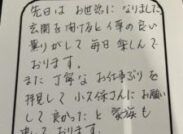 先日は お世話になりました
玄関を開けるとイ草の良い
薫りがして毎日楽しんで
おります。
また丁寧なお仕事ぶりを
拝見して小久保さんにお願い
して良かったと家族も
しております